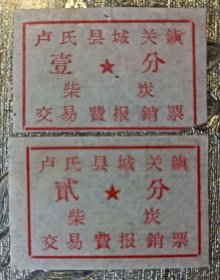 卢氏县城关鎮
壹★分
柴炭
交易費报銷票
卢氏县城关鎮
貳★分
柴炭
交易費报銷票